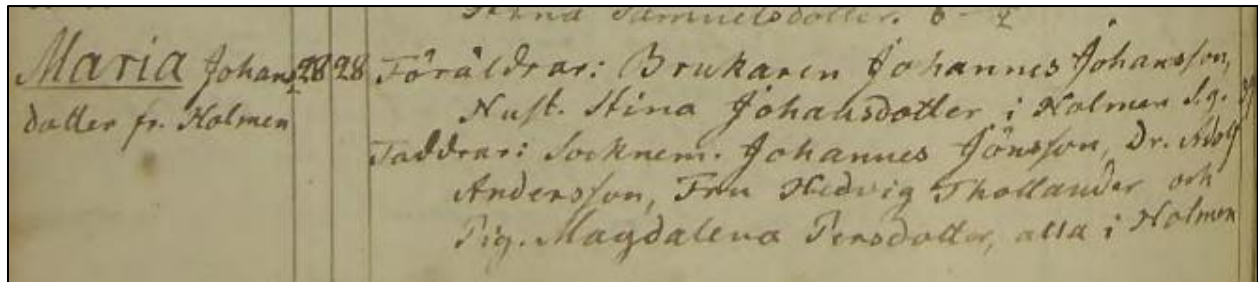 Stina Samuelsdotter. 6-2
Maria Johans 28 28 Föräldrar: Brukaren Johannes Johansson,
dotter fr. Holmen Hust. Stina Johansdotter i Holmen S.g.
Faddrar: Socknem. Johannes Jönsson, Dr. Adolf
Andersson, Fru Hedvig Thollander och
Pig. Magdalena Persdotter, alla i Holmen